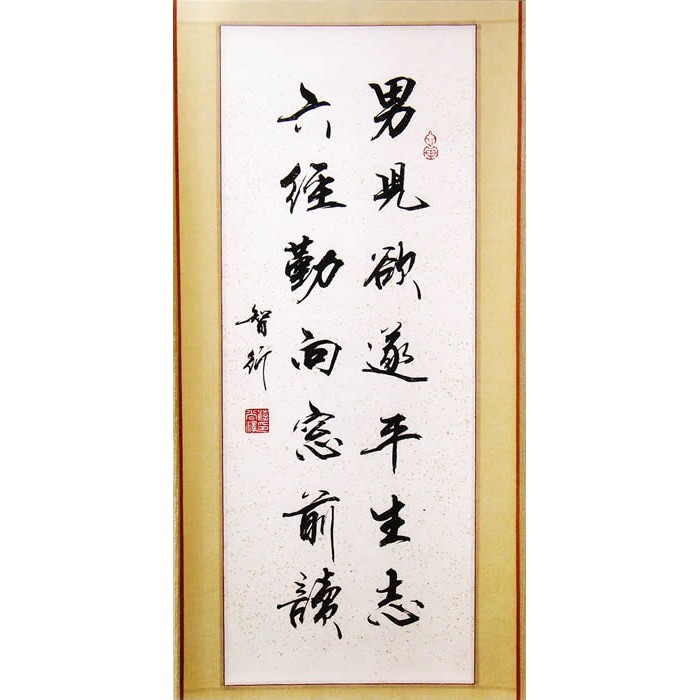 男兒欲遂平生志
六經勤向窓前讀
智衍